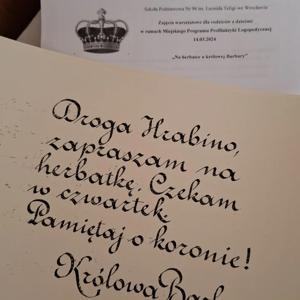 Szkoła Podstawowa Nr 90 im. Leonida Teligi we Wrocławiu
Zajęcia warsztatowe dla rodziców z dziećmi
w ramach Miejskiego Programu Profilaktyki Logopedycznej
14.03.2024
„Na herbatce u królowej Barbary”
Droga Hrabino,
zapraszam na
herbatkę. Czekam
w czwartek.
Pamiętaj o koronie!
Królowa